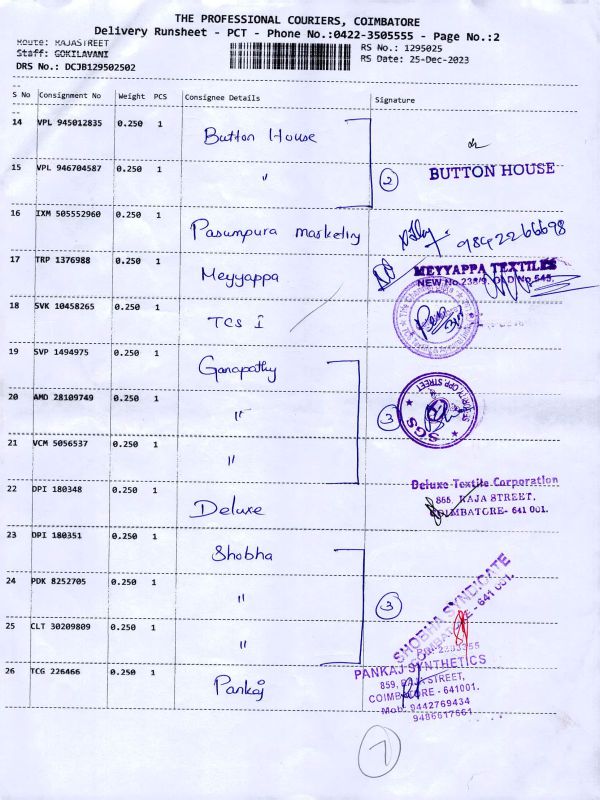 THE PROFESSIONAL COURIERS, COIMBATORE
Delivery Runsheet - PCT - Phone No.:0422-3505555 - Page No.:2
Route: RAJASTREET
Staff: GOKILAVANI
DRS No.: DCJB129502502
RS No.: 1295025
RS Date: 25-Dec-2023
S No Consignment No Weight PCS Consignee Details Signature
14 VPL 945012835 0.250 1 Button House
15 VPL 946704587 0.250 1 " 2 BUTTON HOUSE
16 IXM 505552960 0.250 1 Pasumpura marketing 9842266698
17 TRP 1376988 0.250 1 Meyyappa MEYYAPPA TEXTILES
NEW No.238/9, OLD No.545,
18 SVK 10458265 0.250 1 TCS I
19 SVP 1494975 0.250 1 Ganapathy
20 AMD 28109749 0.250 1 " 3 SGS
OPP. STREET
21 VCM 5056537 0.250 1 "
22 DPI 180348 0.250 1 Deluxe Deluxe Textile Corporation
865, RAJA STREET,
COIMBATORE- 641 001.
23 DPI 180351 0.250 1 Shobha
24 PDK 8252705 0.250 1 " 3 SHOBHA SYNDICATE
COIMBATORE - 641 001.
25 CLT 30209809 0.250 1 "
26 TCG 226466 0.250 1 Pankaj PANKAJ SYNTHETICS
859, RAJA STREET,
COIMBATORE - 641001.
Mob: 9442769434
9486617661
7